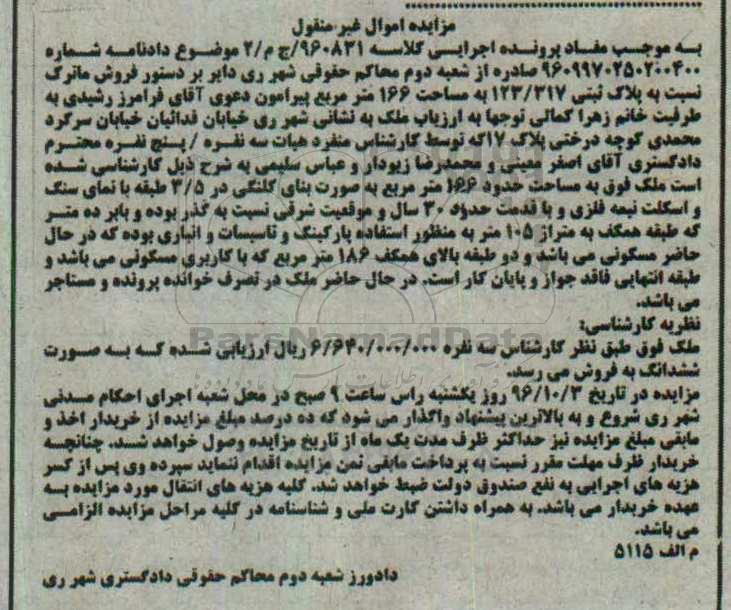 مزایده اموال غیر منقول
به موجب مفاد پرونده اجرایی کلاسه ۹۶۰۸۳۱/ج م/۲ موضوع دادنامه شماره
۹۶۰۹۹۷۰۲۵۰۲۰۰۴۰۰ صادره از شعبه دوم محاکم حقوقی شهر ری دایر بر دستور فروش ماترک
نسبت به پلاک ثبتی ۱۲۳/۳۱۷ به مساحت ۱۶۶ متر مربع پیرامون دعوی آقای فرامرز رشیدی به
طرفیت خانم زهرا کمالی توجها به ارزیاب ملک به نشانی شهر ری خیابان فدائیان خیابان سرگرد
محمدی کوچه درختی پلاک ۱۷که توسط کارشناس منفرد هیات سه نفره / پنج نفره محترم
دادگستری آقای اصغر معینی و محمدرضا زیودار و عباس سلیمی به شرح ذیل کارشناسی شده
است ملک فوق به مساحت حدود ۱۶۶ متر مربع به صورت بنای کلنگی در ۳/۵ طبقه با نمای سنگ
و اسکلت نیمه فلزی و با قدمت حدود ۳۰ سال و موقعیت شرقی نسبت به گذر بوده و بابر ده متر
که طبقه همکف به متراژ ۱۰۵ متر به منظور استفاده پارکینگ و تاسیسات و انباری بوده که در حال
حاضر مسکونی می باشد و دو طبقه بالای همکف ۱۸۶ متر مربع که با کاربری مسکونی می باشد و
طبقه انتهایی فاقد جواز و پایان کار است. در حال حاضر ملک در تصرف خوانده پرونده و مستاجر
می باشد.
نظریه کارشناسی:
ملک فوق طبق نظر کارشناس سه نفره ۶/۶۴۰/۰۰۰/۰۰۰ ریال ارزیابی شده که به صورت
ParsNamadData
ششدانگ به فروش می رسد.
مزایده در تاریخ ۹۶/۱۰/۳ روز یکشنبه راس ساعت ۹ صبح در محل شعبه اجرای احکام مدنی
شهر ری شروع و به بالاترین پیشنهاد واگذار می شود که ده درصد مبلغ مزایده از خریدار اخذ و
مابقی مبلغ مزایده نیز حداکثر ظرف مدت یک ماه از تاریخ مزایده وصول خواهد شد. چنانچه
خریدار ظرف مهلت مقرر نسبت به پرداخت مابقی ثمن مزایده اقدام ننماید سپرده وی پس از کسر
هزیه های اجرایی به نفع صندوق دولت ضبط خواهد شد. کلیه هزیه های انتقال مورد مزایده به
عهده خریدار می باشد. به همراه داشتن کارت ملی و شناسنامه در کلیه مراحل مزایده الزامی
می باشد.
م الف ۵۱۱۵
دادورز شعبه دوم محاکم حقوقی دادگستری شهر ری